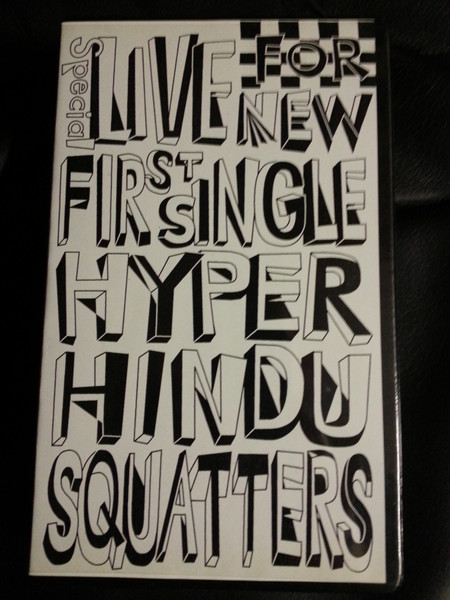 Special LIVE FOR
NEW
FIRST SINGLE
HYPER
HINDU
SQUATTERS